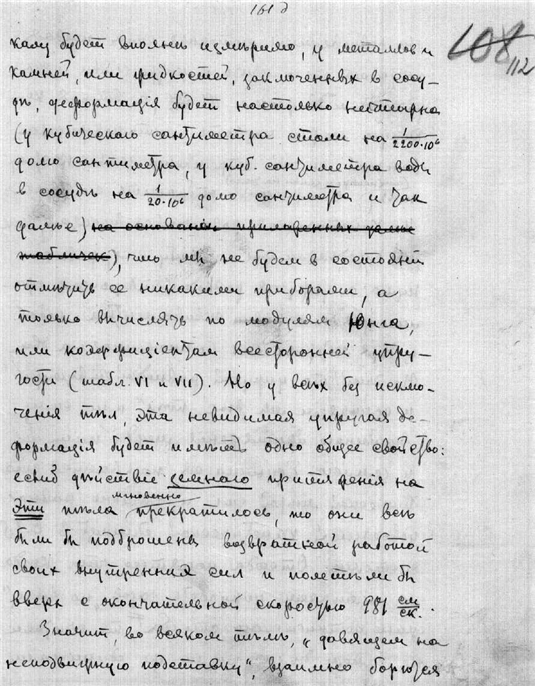 161 д
108
112
хату будет вполнѣ измѣримо, у металлов и
камней, или жидкостей, заключенных в сосу-
дѣ, деформація будет настолько ничтожна
(у кубическаго сантиметра стали на 1/2200·10⁶
долю сантиметра, у куб. сантиметра воды
в сосудѣ на 1/20·10⁶ долю сантиметра и так
далѣе) на основаніи приложенных
табличек), что мы не будем в состояніи
отмѣтить ее никакими приборами, а
только вычислять по модулям Юнга,
или коэффиціентам всесторонней упру-
гости (табл. VI и VII). Но у всѣх без исклю-
ченія тѣл, эта невидимая упругая де-
формація будет имѣть одно общее свойство:
еслиб дѣйствіе земного притяженія на
мгновенно
эти тѣла прекратилось, то они всѣ
были бы подброшены возвратной работой
своих внутренних сил и полетѣли бы
вверх с окончательной скоростью 981 см/ск.
Значит, во всяком тѣлѣ, „давящем на
неподвижную подставку“, взаимно борются